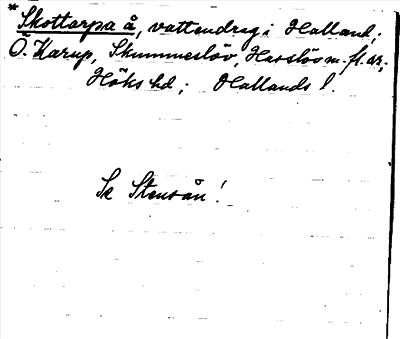 * Skottarpa å, vattendrag i Halland;
Ö. Karup, Skummeslöv, Hasslöv m. fl. sr,
Höks hd; Hallands l.
Se Stensån!